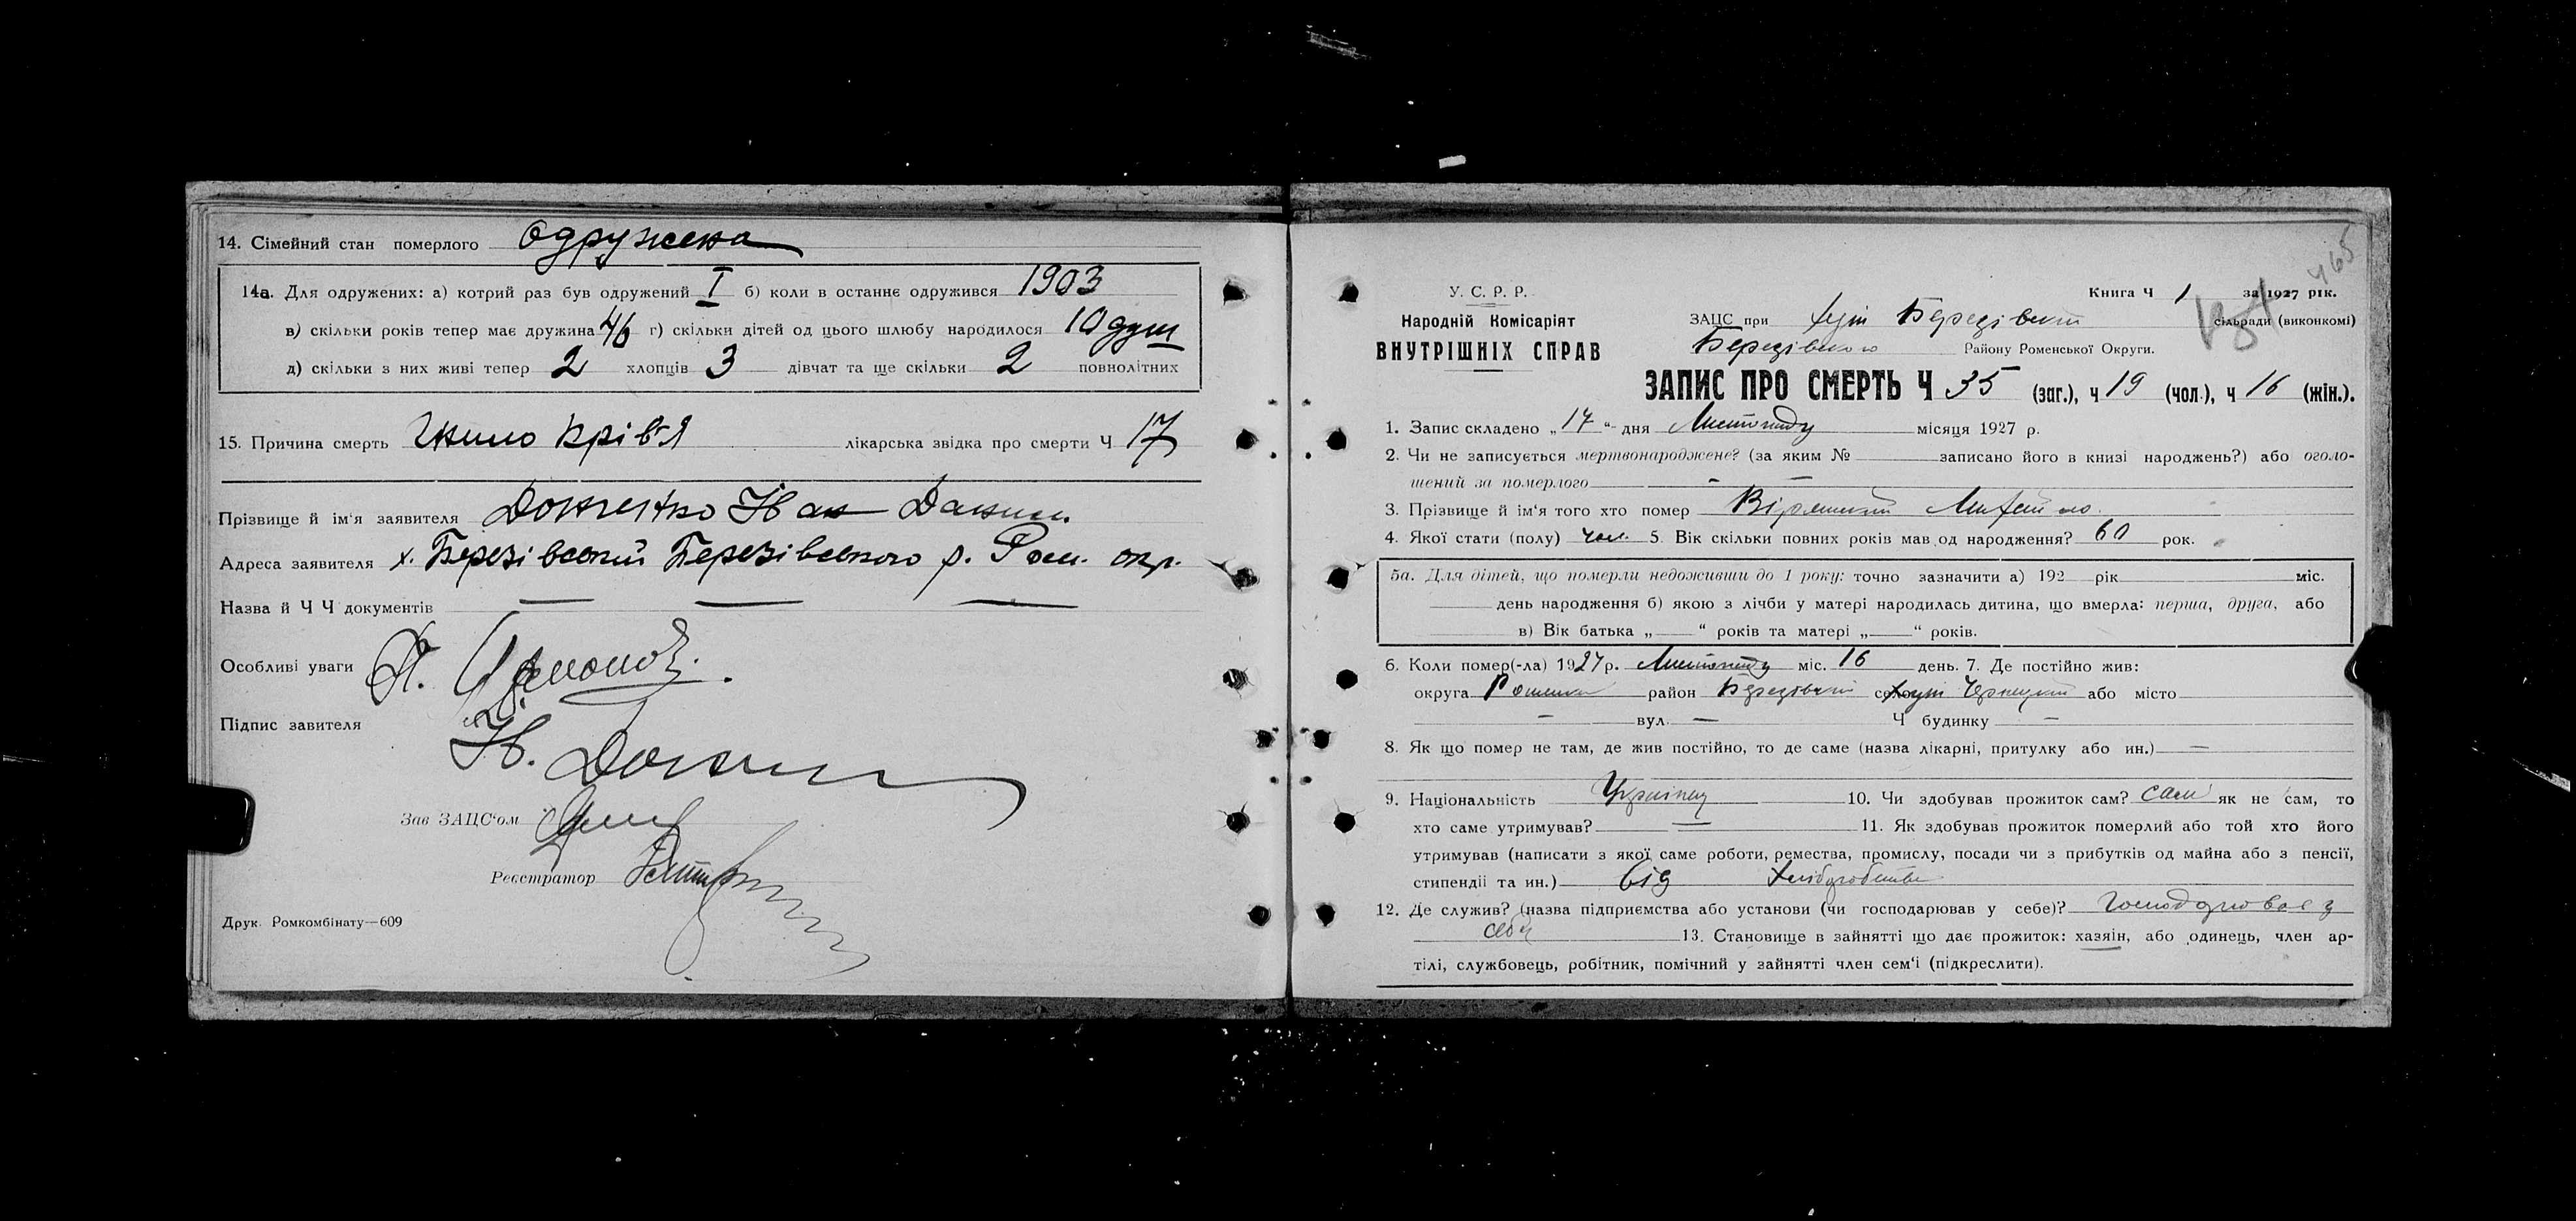 14. Сімейний стан померлого Одружена
14а. Для одружених: а) котрий раз був одружений I б) коли в останнє одружився 1903
в) скільки років тепер має дружина 46 г) скільки дітей од цього шлюбу народилося 10 душ
д) скільки з них живі тепер 2 хлопців 3 дівчат та ще скільки 2 повнолітних
15. Причина смерть крівʼя лікарська звідка про смерти Ч 17
Прізвище й ім'я заявителя Іван
Адреса заявителя х. Березівский Березівського р. Ром. окр.
Назва й Ч Ч документів — — —
Особливі уваги
Підпис завителя Ів.
Зав ЗАЦС'ом
Реєстратор
Друк. Ромкомбінату—609
465
У. С. Р. Р.
Книга Ч 1 за 1927 рік.
Народній Комісаріят
ЗАЦС при Березівскій сільради (виконкомі)
ВНУТРІШНІХ СПРАВ
Березівського Району Роменської Округи.
ЗАПИС ПРО СМЕРТЬ Ч 35 (заг.), ч 19 (чол.), ч 16 (жін.).
1. Запис складено „17“ дня Листопаду місяця 1927 р.
2. Чи не записується мертвонароджене? (за яким № записано його в книзі народжень?) або оголо-
шений за померлого — —
3. Прізвище й ім'я того хто помер Михайло
4. Якої стати (полу) чол. 5. Вік скільки повних років мав од народження? 60 рок.
5а. Для дітей, що померли недоживши до 1 року: точно зазначити а) 192 рік міс.
день народження б) якою з лічби у матері народилась дитина, що вмерла: перша, друга, або
в) Вік батька „ “ років та матері „ “ років.
6. Коли помер(-ла) 1927 р. Листопаду міс. 16 день. 7. Де постійно жив:
округа Роменська район Березівский село або місто
— вул. — Ч будинку —
8. Як що помер не там, де жив постійно, то де саме (назва лікарні, притулку або ин.) —
9. Національність Українец 10. Чи здобував прожиток сам? сам як не сам, то
хто саме утримував? — 11. Як здобував прожиток померлий або той хто його
утримував (написати з якої саме роботи, ремества, промислу, посади чи з прибутків од майна або з пенсії,
стипендії та ин.) від хліборобства
12. Де служив? (назва підприємства або установи (чи господарював у себе)? Господарював у
себе 13. Становище в зайнятті що дає прожиток: хазяін, або одинець, член ар-
тілі, службовець, робітник, помічний у зайнятті член сем'ї (підкреслити).